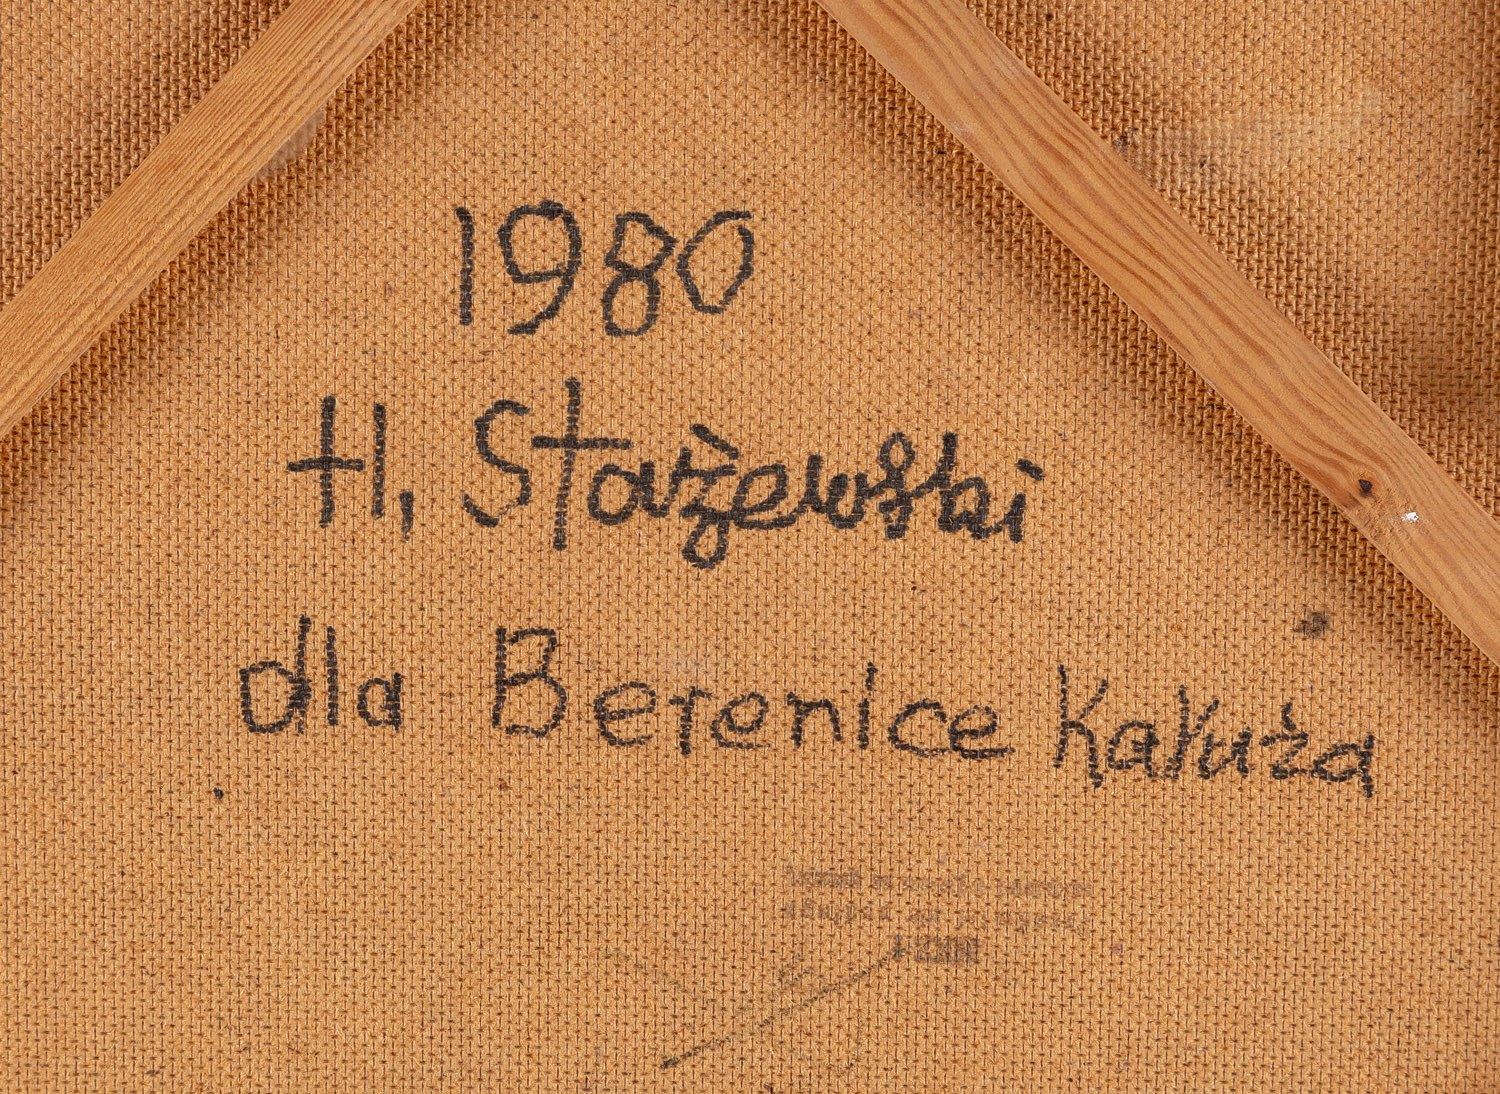 1980
H, Stażewski
dla Berenice Kałuża